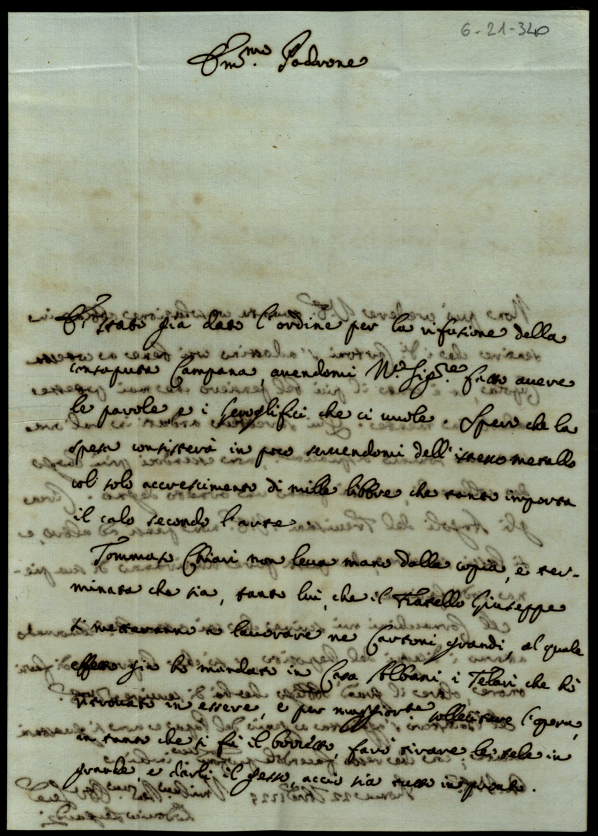 6-21-340
Em.mo Padrone
È stato già dato l'ordine per la rifusione della
consaputa Campana, avendomi N.ro Sig.re fatto avere
le parole e i geroglifici che ci vuole. Spero che la
spesa consisterà in poco servendomi dell'istesso metallo
col solo accrescimento di mille libbre che tanto importa
il calo secondo l'arte
Tommaso Chiari non leva mano dalla copia, e ter-
minata che sia, tanto lui, che il Fratello Giuseppe
si metteranno a lavorare ne Cartoni grandi, al quale
effetto già hò mandato in Casa Albani i Telari che hò
ritrovato in essere, e per maggiormte sollecitare l'opera,
in tanto che si fà il bozzetto, farò tirare la tela in
grande, e darli il gesso, acciò sia tutto in pronto.